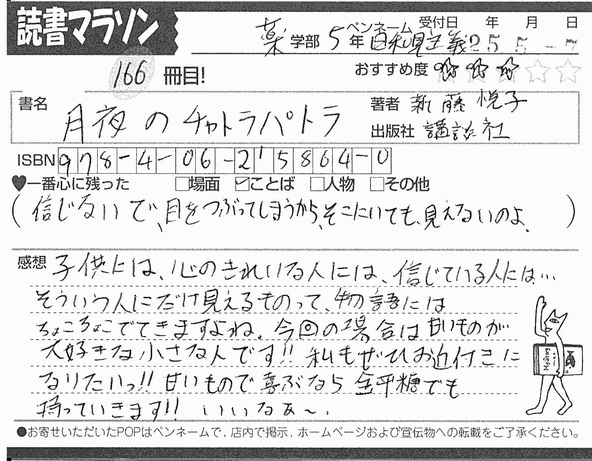 読書マラソン
ペンネーム 受付日 年 月 日
薬 学部 5 年 日和見主義 25 5 - 7
166 冊目! おすすめ度 ☆☆☆☆☆
書名 月夜のチャトラパトラ
著者 新藤悦子
出版社 講談社
ISBN 978-4-06-215864-0
♥一番心に残った □場面 ☑ことば □人物 □その他
(信じないで、目をつぶってしまうから、そこにいても、見えないのよ。)
感想 子供には、心のきれいな人には、信じている人には…
そういう人にだけ見えるものって、物語には
ちょこちょこでてきますよね。今回の場合は甘いものが
大好きな小さな人です!! 私もぜひお近付きに
なりたいっ!! 甘いもので喜ぶなら金平糖でも
持っていきます!! いいなぁ〜。
●お寄せいただいたPOPはペンネームで、店内で掲示、ホームページおよび宣伝物への転載をご了承ください。